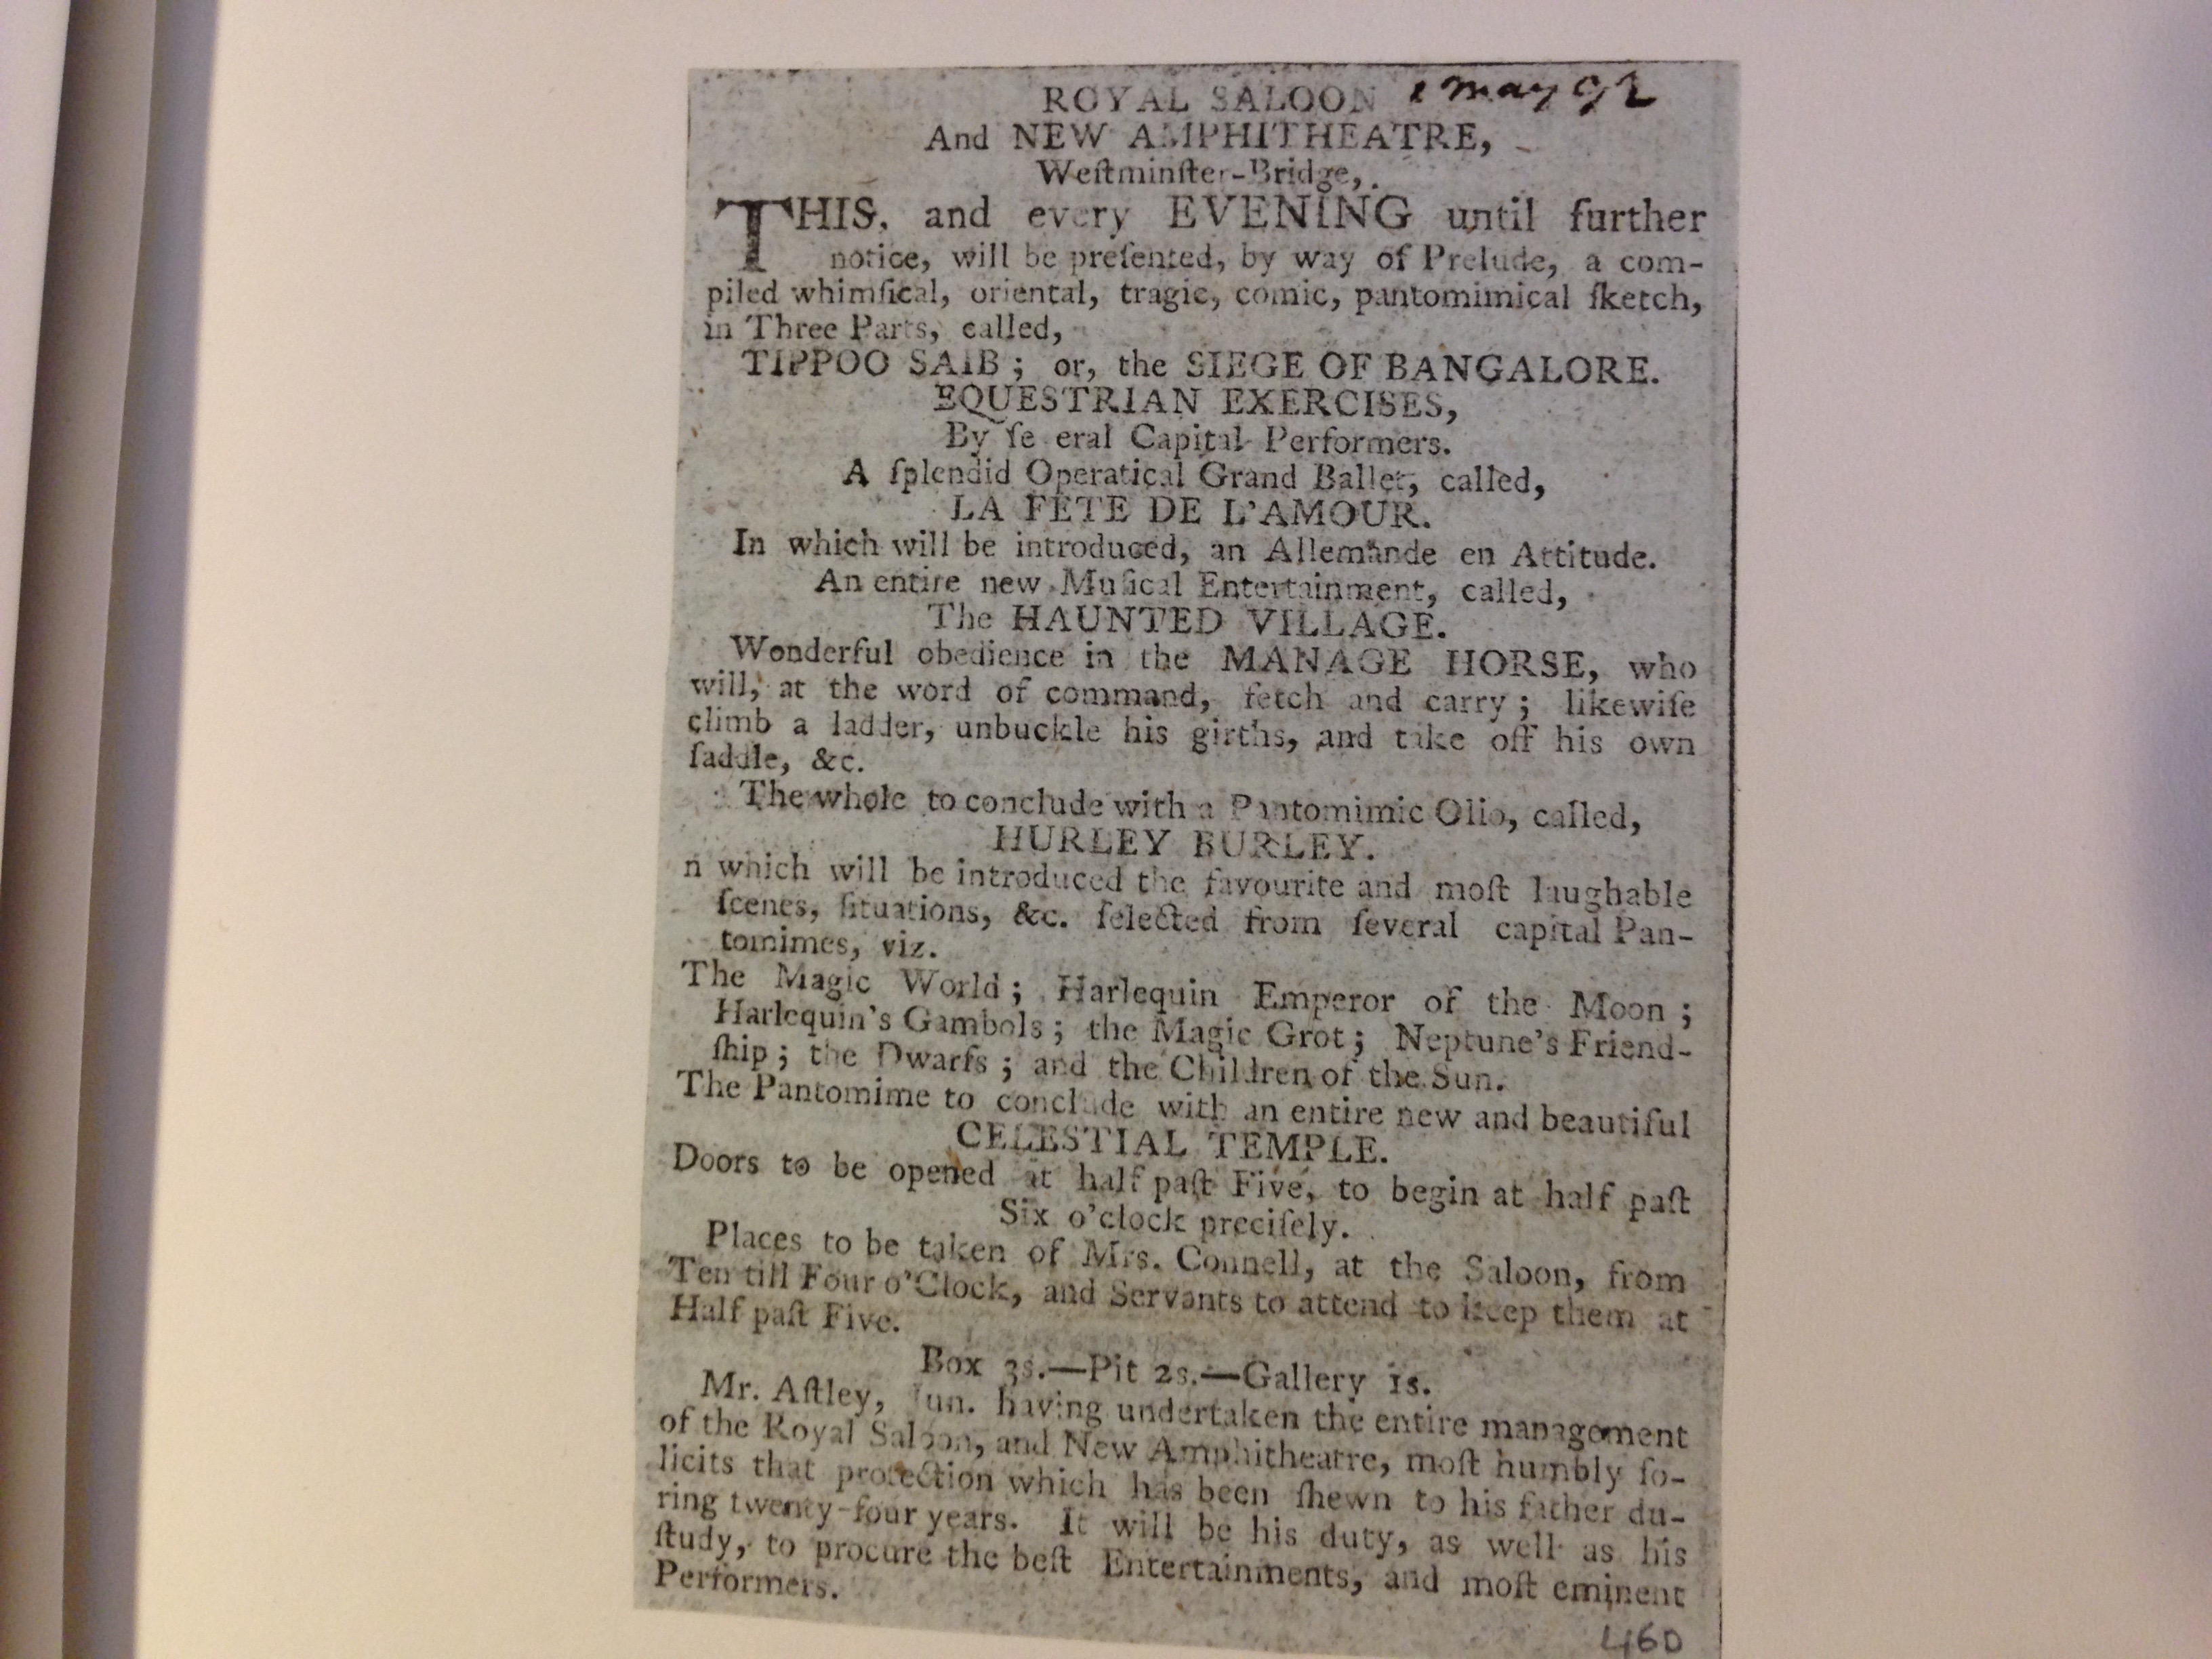 ROYAL SALOON 1 may 92
And NEW AMPHITHEATRE,
Weſtminſter-Bridge,
THIS, and every EVENING until further
notice, will be preſented, by way of Prelude, a com-
piled whimſical, oriental, tragic, comic, pantomimical ſketch,
in Three Parts, called,
TIPPOO SAIB; or, the SIEGE OF BANGALORE.
EQUESTRIAN EXERCISES,
By ſe eral Capital Performers.
A ſplendid Operatical Grand Ballet, called,
LA FETE DE L'AMOUR.
In which will be introduced, an Allemande en Attitude.
An entire new Muſical Entertainment, called,
The HAUNTED VILLAGE.
Wonderful obedience in the MANAGE HORSE, who
will, at the word of command, fetch and carry; likewiſe
climb a ladder, unbuckle his girths, and take off his own
ſaddle, &c.
The whole to conclude with a Pantomimic Olio, called,
HURLEY BURLEY.
n which will be introduced the favourite and moſt laughable
ſcenes, ſituations, &c. ſelected from ſeveral capital Pan-
tomimes, viz.
The Magic World; Harlequin Emperor of the Moon;
Harlequin's Gambols; the Magic Grot; Neptune's Friend-
ſhip; the Dwarfs; and the Children of the Sun.
The Pantomime to conclude with an entire new and beautiful
CELESTIAL TEMPLE.
Doors to be opened at half paſt Five, to begin at half paſt
Six o'clock preciſely.
Places to be taken of Mrs. Connell, at the Saloon, from
Ten till Four o'Clock, and Servants to attend to keep them at
Half paſt Five.
Box 3s.—Pit 2s.—Gallery 1s.
Mr. Aſtley, Jun. having undertaken the entire management
of the Royal Saloon, and New Amphitheatre, moſt humbly ſo-
licits that protection which has been ſhewn to his father du-
ring twenty-four years. It will be his duty, as well as his
ſtudy, to procure the beſt Entertainments, and moſt eminent
Performers.
460